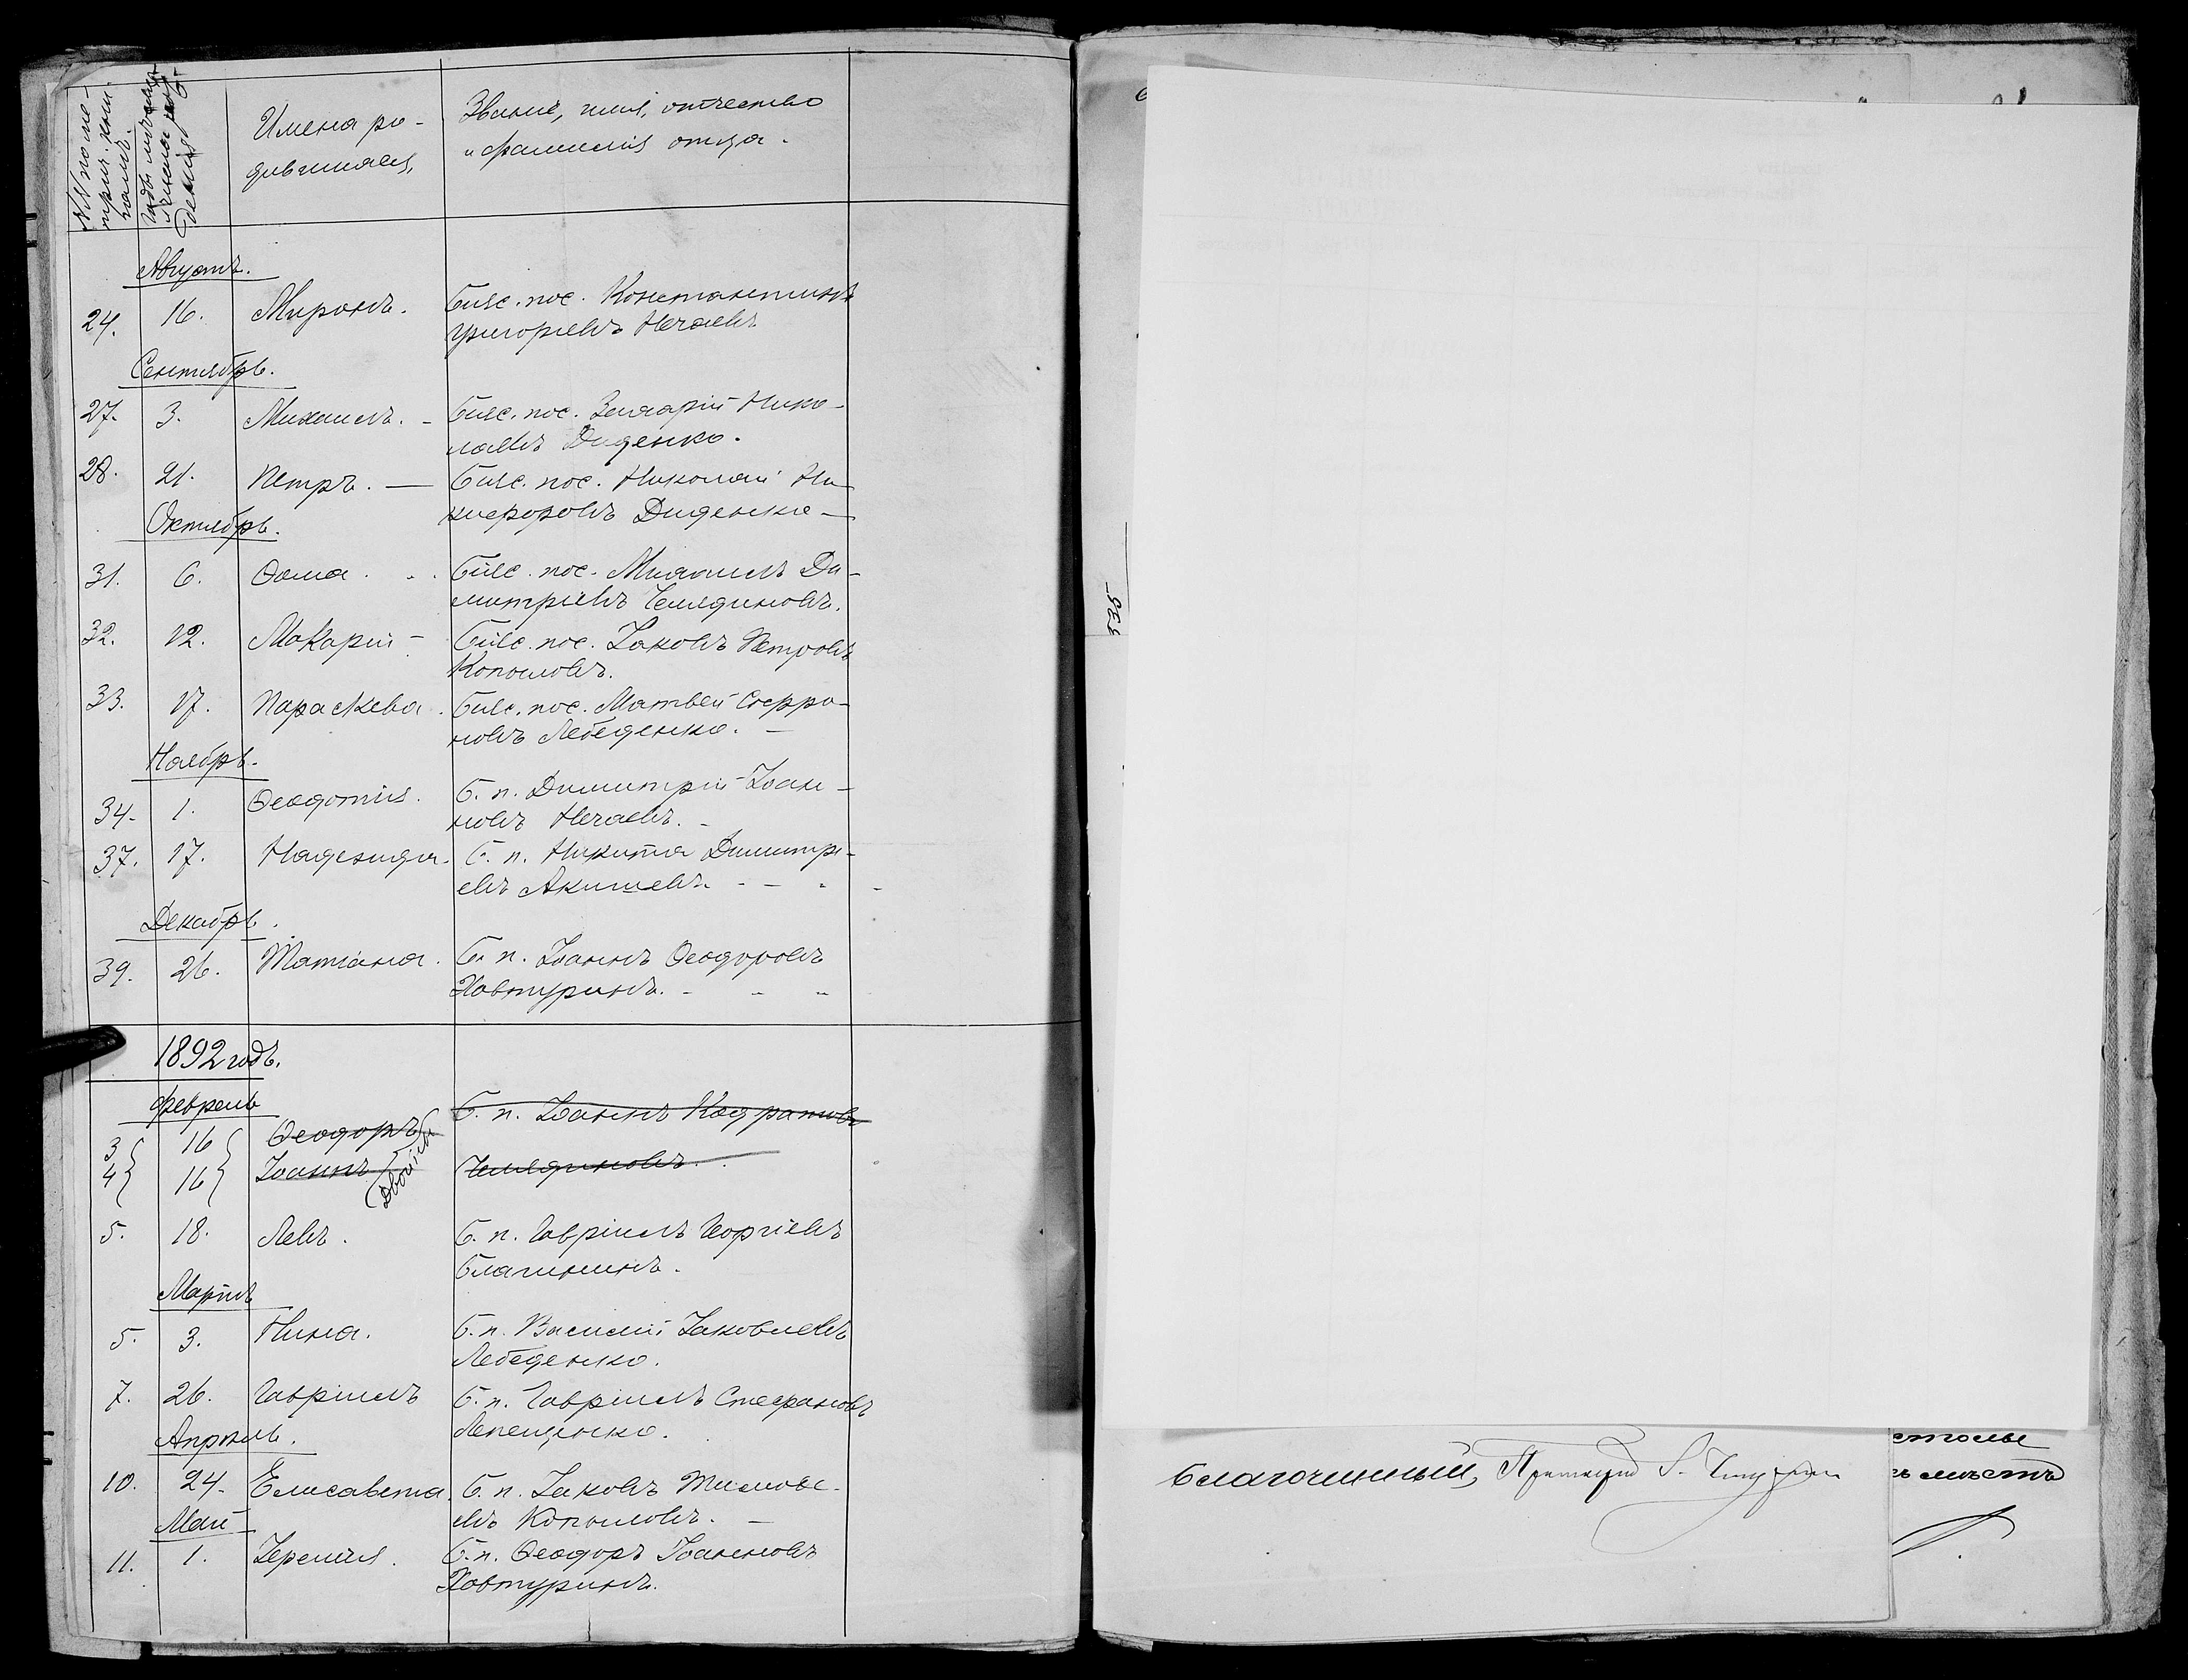 NN по ме-
трич. кни-
гамъ.
Годъ, мѣсяцъ
и число рож-
денія
Имена ро-
дившихся,
Званіе, имя, отчество
и фамилія отца.
Августъ.
24. 16. Миронъ. Билс. пос. Константинъ
Григорьевъ Нечаевъ
Сентябрь.
27. 3. Михаилъ. - Билс. пос. Захарій Нико-
лаевъ Диденко.
28. 21. Петръ. — Билс. пос. Николай Ни-
кифоровъ Диденко —
Октябрь.
31. 6. Ѳома. Билс. пос. Михаилъ Ди-
митріевъ Челядиновъ.
32. 12. Макарій - Билс. пос. Іаковъ Петровъ
Копыловъ.
33. 17. Параскева. Билс. пос. Матвей Софро-
новъ Лебеденко. —
Ноябрь.
34. 1. Ѳеодотія. Б. п. Димитрій Іоан-
новъ Нечаевъ. -
37. 17. Надежда. Б. п. Никита Димитрі-
евъ Акишевъ.
Декабрь.
39. 26. Татіана. Б. п. Іоаннъ Ѳеодоровъ
Ховтуринъ.
1892 годъ.
Февраль
3 16 Ѳеодоръ Б. п. Іоаннъ Кодратовъ
4 16 Іоаннъ (двойни) Челядиновъ.
5. 18. Левъ. Б. п. Гавріилъ Георгіевъ
Благининъ.
Мартъ
5. 3. Нина. Б. п. Василій Іаковлевъ
Лебеденко.
7. 26. Гавріилъ Б. п. Гавріилъ Стефановъ
Лепещенко.
Апрѣль.
10. 24. Елисавета. Б. п. Іаковъ Тимофе-
евъ Копыловъ. —
Май
11. 1. Іеремія. Б. п. Ѳеодоръ Іоанновъ
Ховтуринъ.
535
Благочинный, Протоіерей